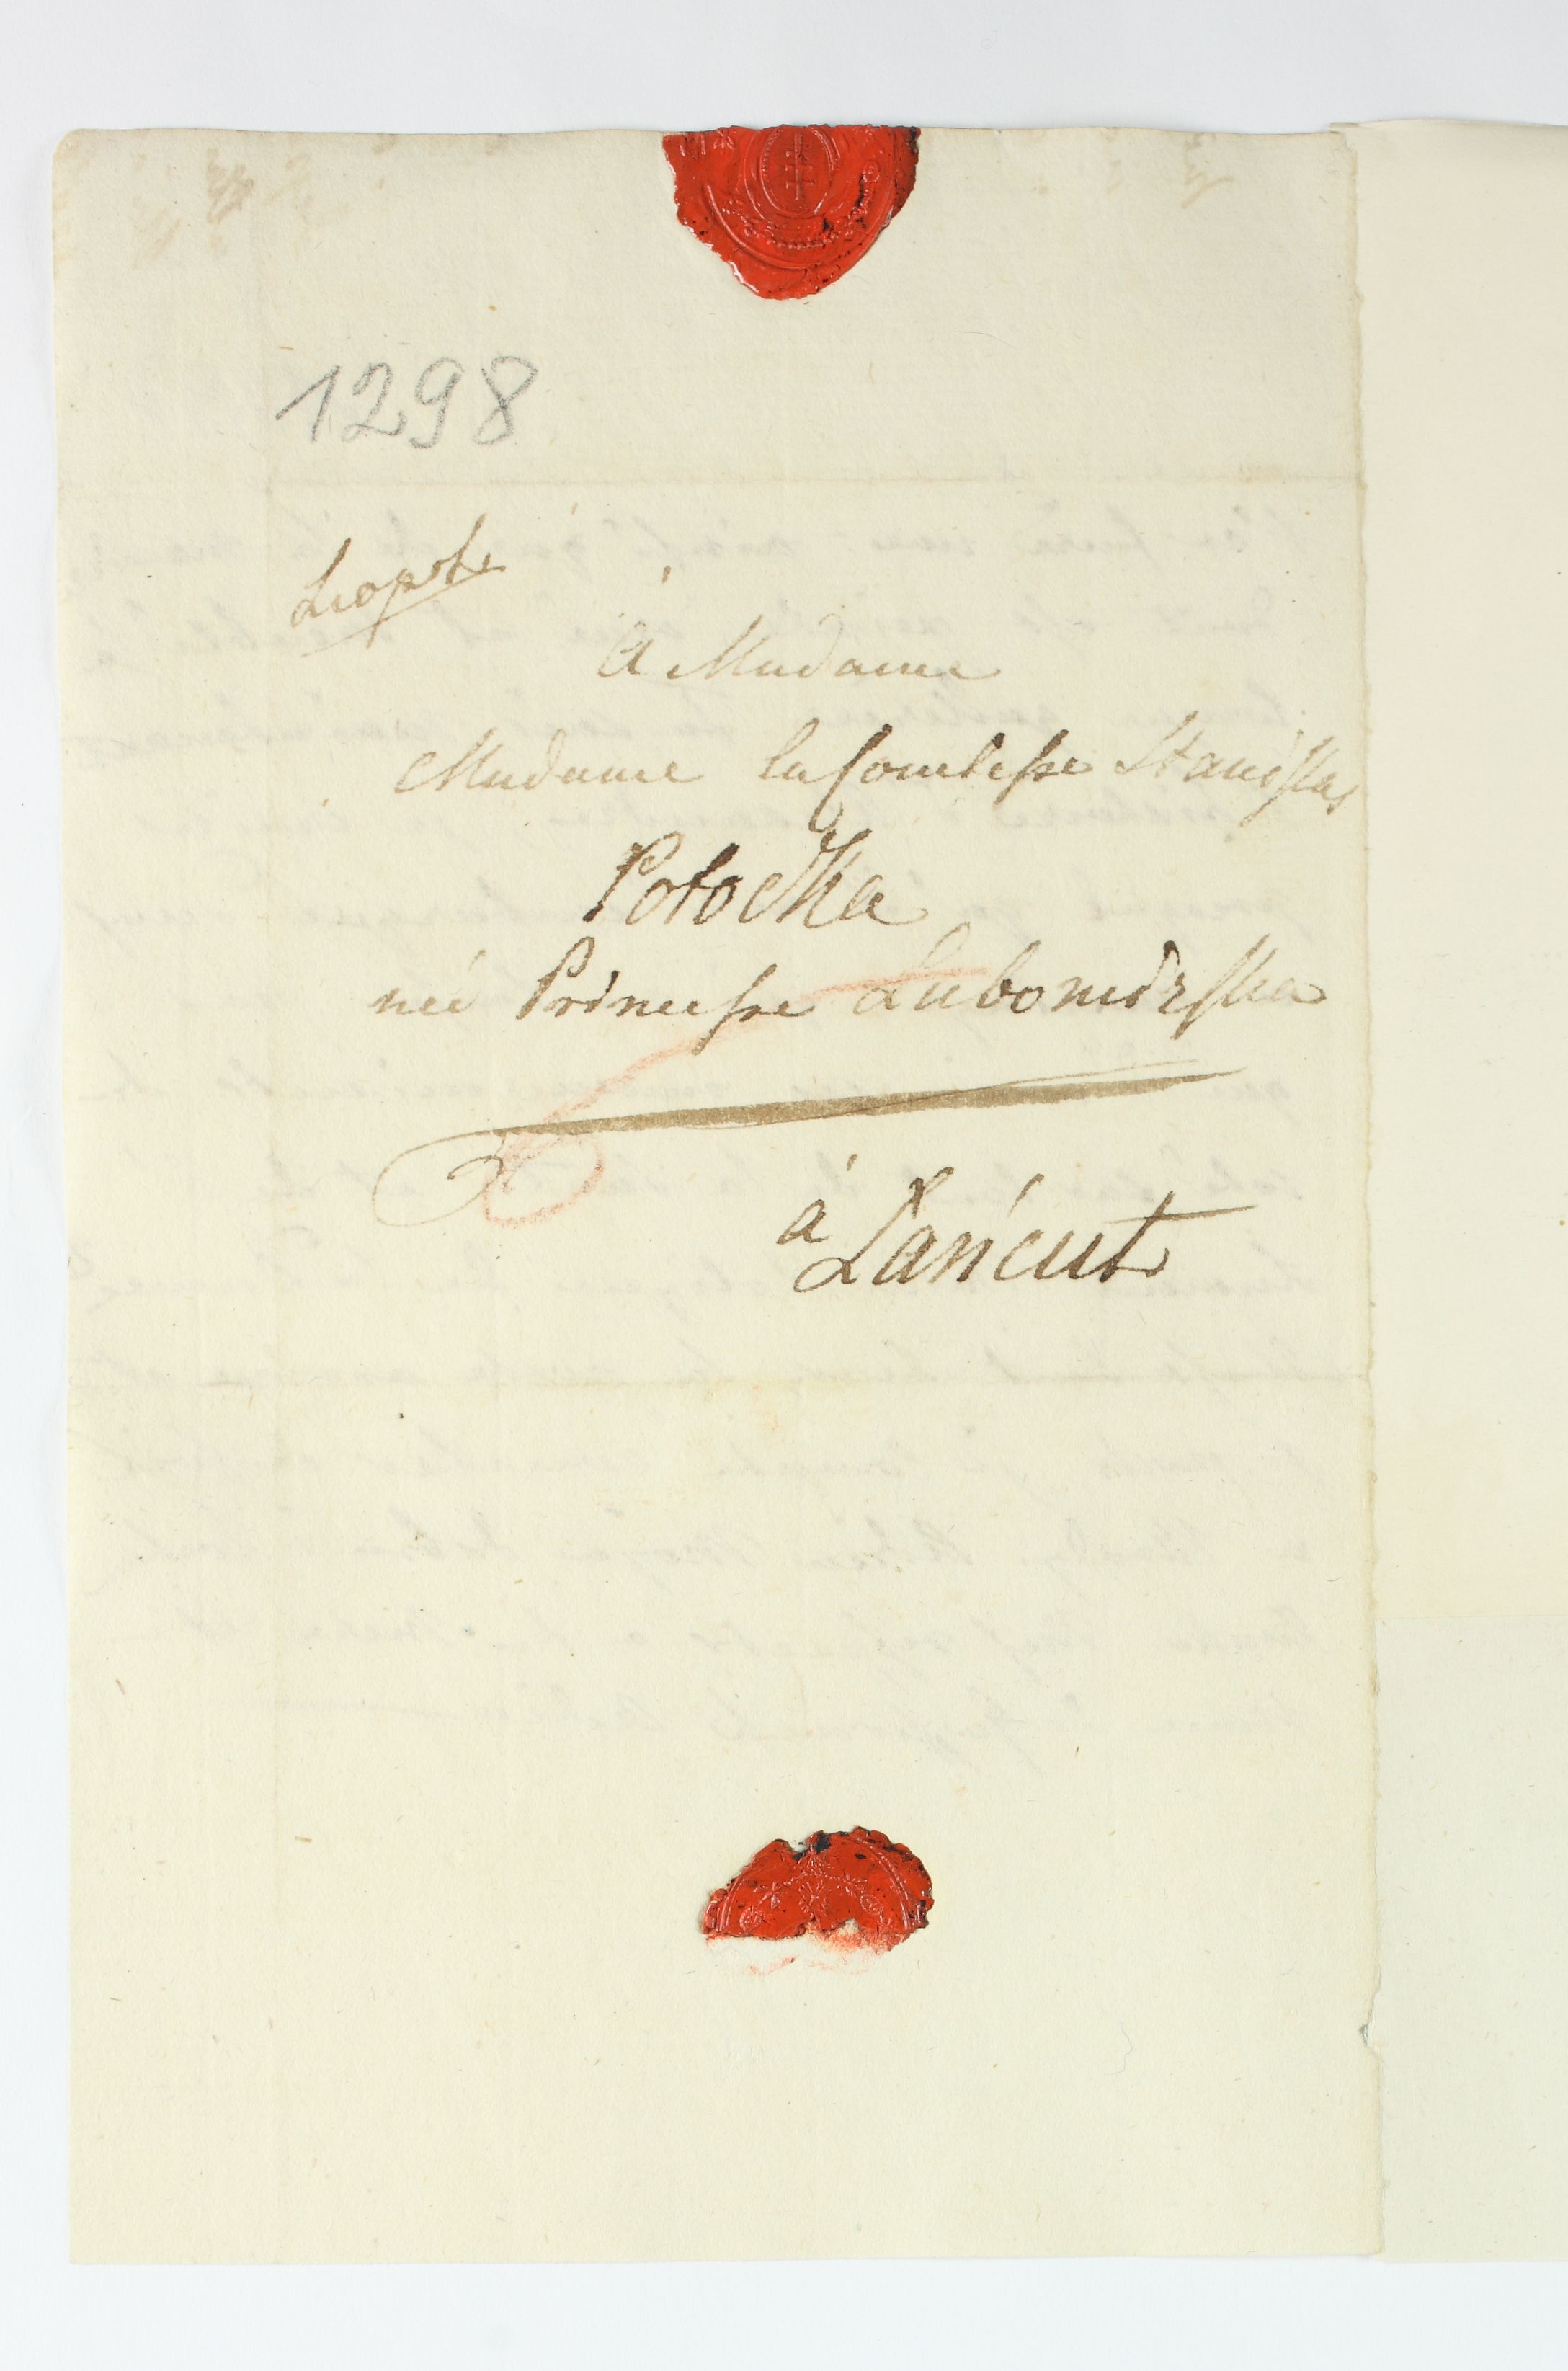 1298
Leopole
À Madame
Madame la Comtesse Stanislas
Potocka
née Princesse Lubomirska
à Łańcut